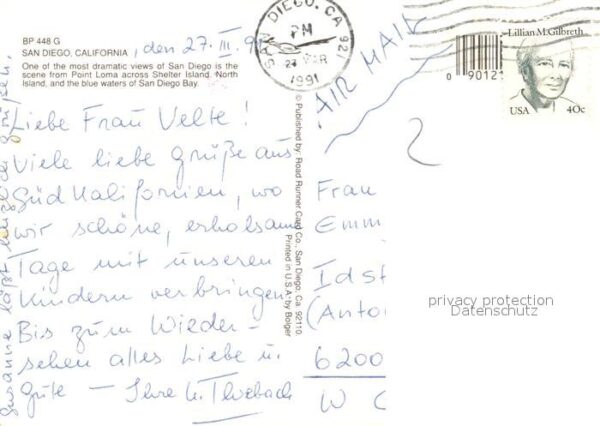 BP 448 G
SAN DIEGO, CALIFORNIA, den 27. III. 91
One of the most dramatic views of San Diego is the
scene from Point Loma across Shelter Island, North
Island, and the blue waters of San Diego Bay.
Liebe Frau Velte!
Viele liebe Grüße aus
Südkalifornien, wo
wir schöne, erholsame
Tage mit unseren
Kindern verbringen
Bis zum Wieder-
sehen alles Liebe u.
Gute — Ihre
Susanne läßt
grüßen.
© Published by: Road Runner Card Co., San Diego, Ca. 92110
Printed in U.S.A. by Bolger
SAN DIEGO, CA 921
PM
1991
AIR MAIL
0 90121
Lillian M. Gilbreth
USA 40c
2
Frau
Emm
Idst
(Anto
6200
W
privacy protection
Datenschutz